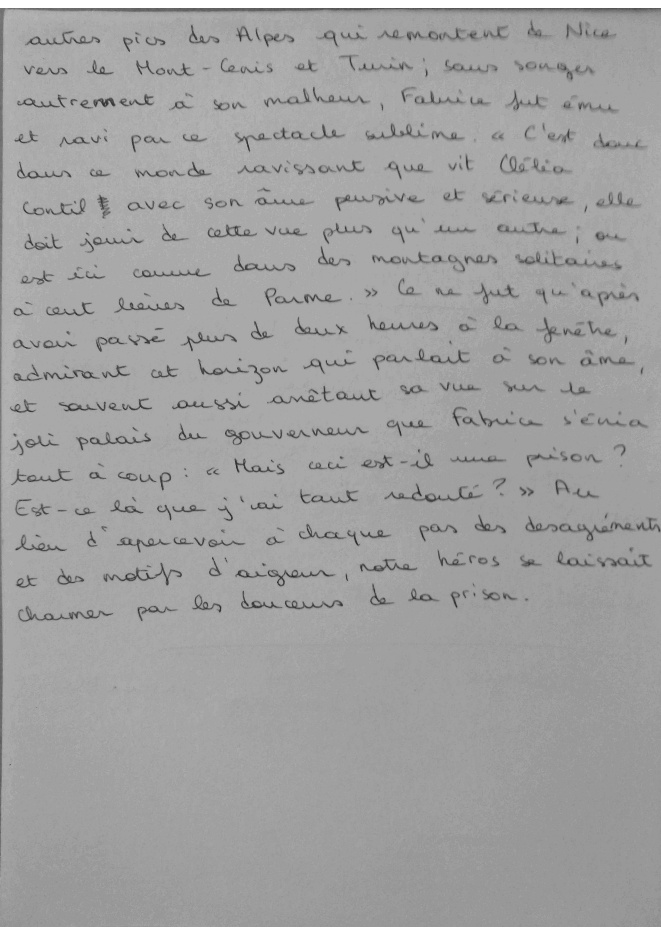 autres pics des Alpes qui remontent de Nice
vers le Mont-Cenis et Turin ; sans songer
autrement à son malheur, Fabrice fut ému
et ravi par ce spectacle sublime. « C'est donc
dans ce monde ravissant que vit Clélia
Contil avec son âme pensive et sérieuse, elle
doit jouir de cette vue plus qu'un autre ; on
est ici comme dans des montagnes solitaires
à cent lieues de Parme. » Ce ne fut qu'après
avoir passé plus de deux heures à la fenêtre,
admirant cet horizon qui parlait à son âme,
et souvent aussi arrêtant sa vue sur le
joli palais du gouverneur que Fabrice s'écria
tout à coup : « Mais ceci est-il une prison ?
Est-ce là que j'ai tant redouté ? » Au
lieu d'apercevoir à chaque pas des desagréments
et des motifs d'aigreur, notre héros se laissait
charmer par les douceurs de la prison.